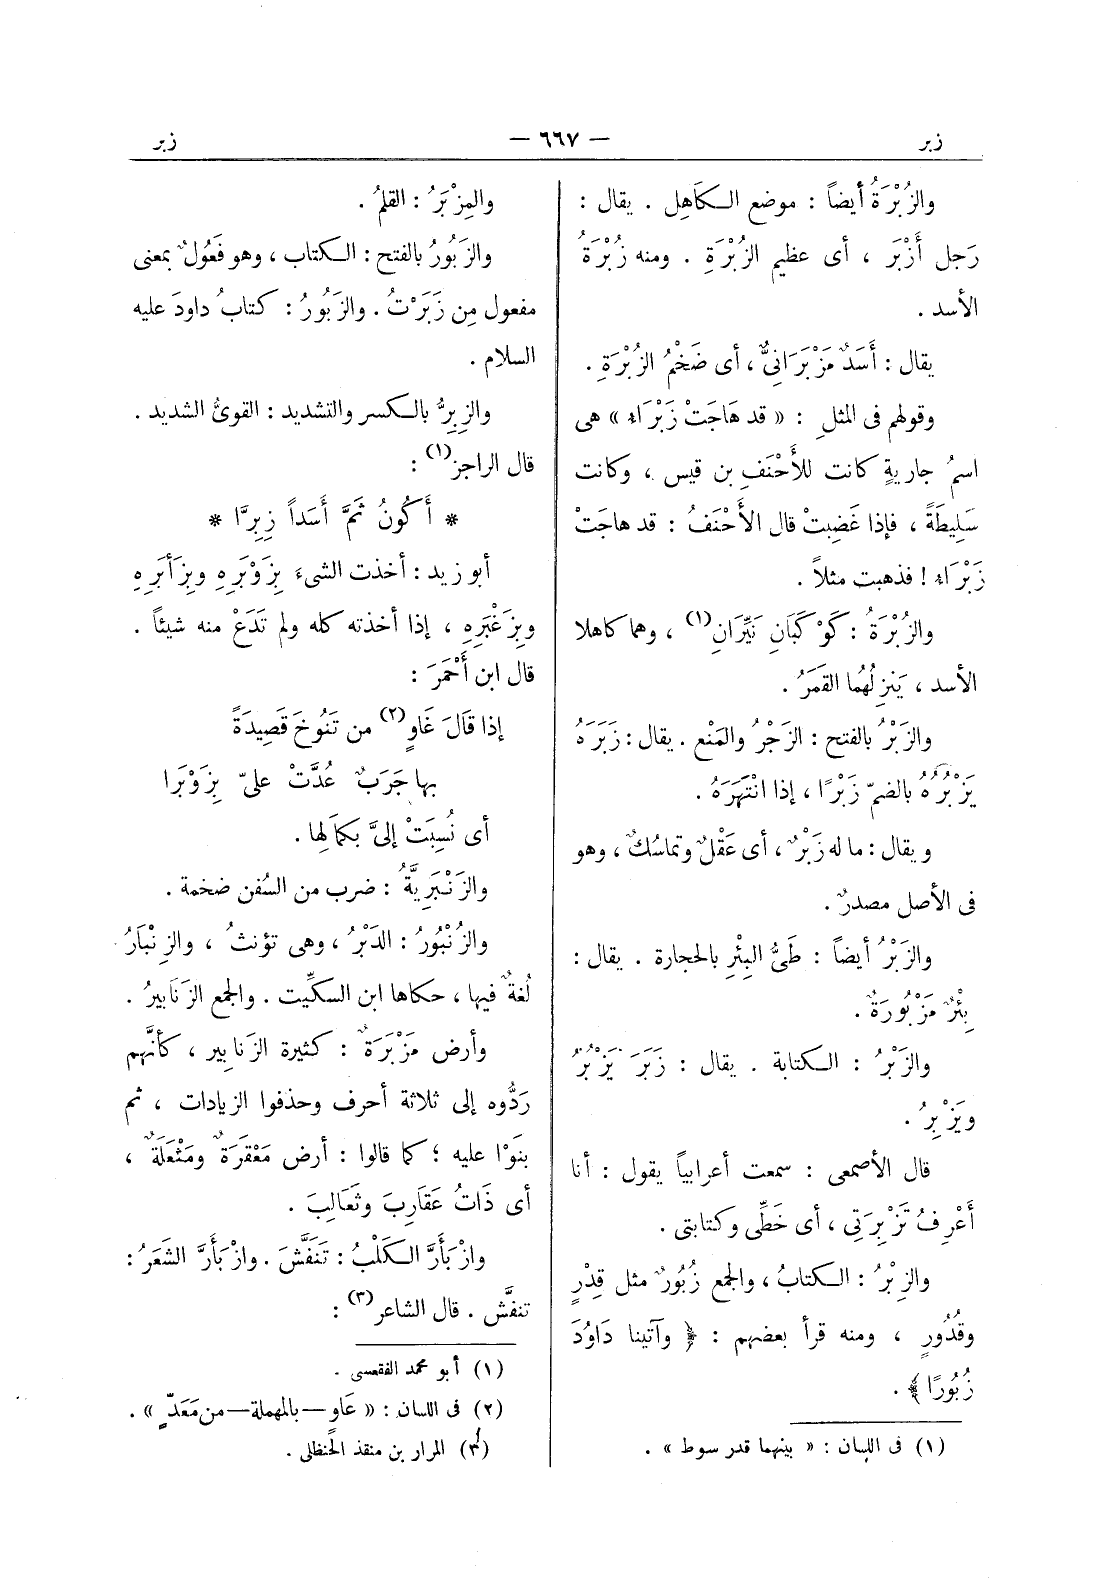 زبر — ٦٦٧ — زبر
والزُبْرَةُ أيضاً : موضع الكَاهِل . يقال :
رَجل أَزْبَر ، أى عظيم الزُبْرَةِ . ومنه زُبْرَةُ
الأسد .
يقال : أَسَدٌ مَزْبَرَانِيٌّ ، أى ضَخْمُ الزُبْرَةِ .
وقولهم فى المثلِ : « قد هَاجَتْ زَبْرَاء » هى
اسمُ جاريةٍ كانت للأَحْنَفِ بن قيس ، وكانت
سَلِيطَةً ، فإذا غَضِبتْ قال الأَحْنَفُ : قد هاجَتْ
زَبْرَاء ! فذهبت مثلاً .
والزُبْرَةُ : كَوْكَبَانِ نَيِّرَانِ(١) ، وهما كاهلا
الأسد ، يَنزِلُهُما القَمَرُ .
والزَبْرُ بالفتح : الزَجْرُ والمَنْع . يقال : زَبَرَهُ
يَزْبُرُهُ بالضمّ زَبْرًا ، إذا انْتَهَرَهُ .
ويقال : ما له زَبْرٌ ، أى عَقْلٌ وتماسُكٌ ، وهو
فى الأصل مصدرٌ .
والزَبْرُ أيضاً : طَىُّ البِئْرِ بالحجارة . يقال :
بِئْرٌ مَزْبُورَةٌ .
والزَبْرُ : الكتابة . يقال : زَبَرَ يَزْبُرُ
ويَزْبِرُ .
قال الأصمعى : سمعت أعرابياً يقول : أنا
أَعْرِفُ تَزْبِرَتِى ، أى خَطِّى وكتابتى .
والزِبْرُ : الكتابُ ، والجمع زُبُورٌ مثل قِدْرٍ
وقُدُورٍ ، ومنه قرأ بعضهم : ﴿ وآتينا دَاوُدَ
زُبُورًا ﴾ .
(١) فى اللسان : « بينهما قدر سوط » .
والمِزْبَرُ : القلمُ .
والزَبُورُ بالفتح : الكتاب ، وهو فَعُولٌ بمعنى
مفعول مِن زَبَرْتُ . والزَبُورُ : كتابُ داودَ عليه
السلام .
والزِبِرُّ بالكسر والتشديد : القوىُّ الشديد .
قال الراجز(١) :
* أَكُونُ ثَمَّ أَسَداً زِبِرَّا *
أبو زيد : أخذت الشىءَ بِزَوْبَرِهِ وبِزَأبَرِهِ
وبِزَغْبَرِهِ ، إذا أخذته كله ولم تَدَعْ منه شيئاً .
قال ابن أَحْمَرَ :
إذا قَالَ غَاوٍ(٢) من تَنُوخَ قَصِيدَةً
بها جَرَبٌ عُدَّتْ علىّ بِزَوْبَرا
أى نُسِبَتْ إلىَّ بكمَالِها .
والزَنْبَرِيَّةُ : ضرب من السُفن ضخمة .
والزُنْبُورُ : الدَبْرُ ، وهى تؤنثُ ، والزِنْبَارُ
لُغةٌ فيها ، حكاها ابن السكِّيت . والجمع الزَنَابيرُ .
وأرض مَزْبَرَةٌ : كثيرة الزنابير ، كأنَّهم
رَدُّوه إلى ثلاثة أحرف وحذفوا الزيادات ، ثم
بنَوْا عليه ؛ كما قالوا : أرض مَعْقَرَةٌ ومَثْعَلَةٌ ،
أى ذَاتُ عقَارِبَ وثَعَالِبَ .
وازْبَأَرَّ الكَلْبُ : تَنَفَّشَ . وازْبَأَرَّ الشَعَرُ :
تنفَّش . قال الشاعر(٣) :
(١) أبو محمد الفقعسى .
(٢) فى اللسان : « عَاوٍ — بالمهملة — من مَعَدّ » .
(٣) المرار بن منقذ الحنظلى .